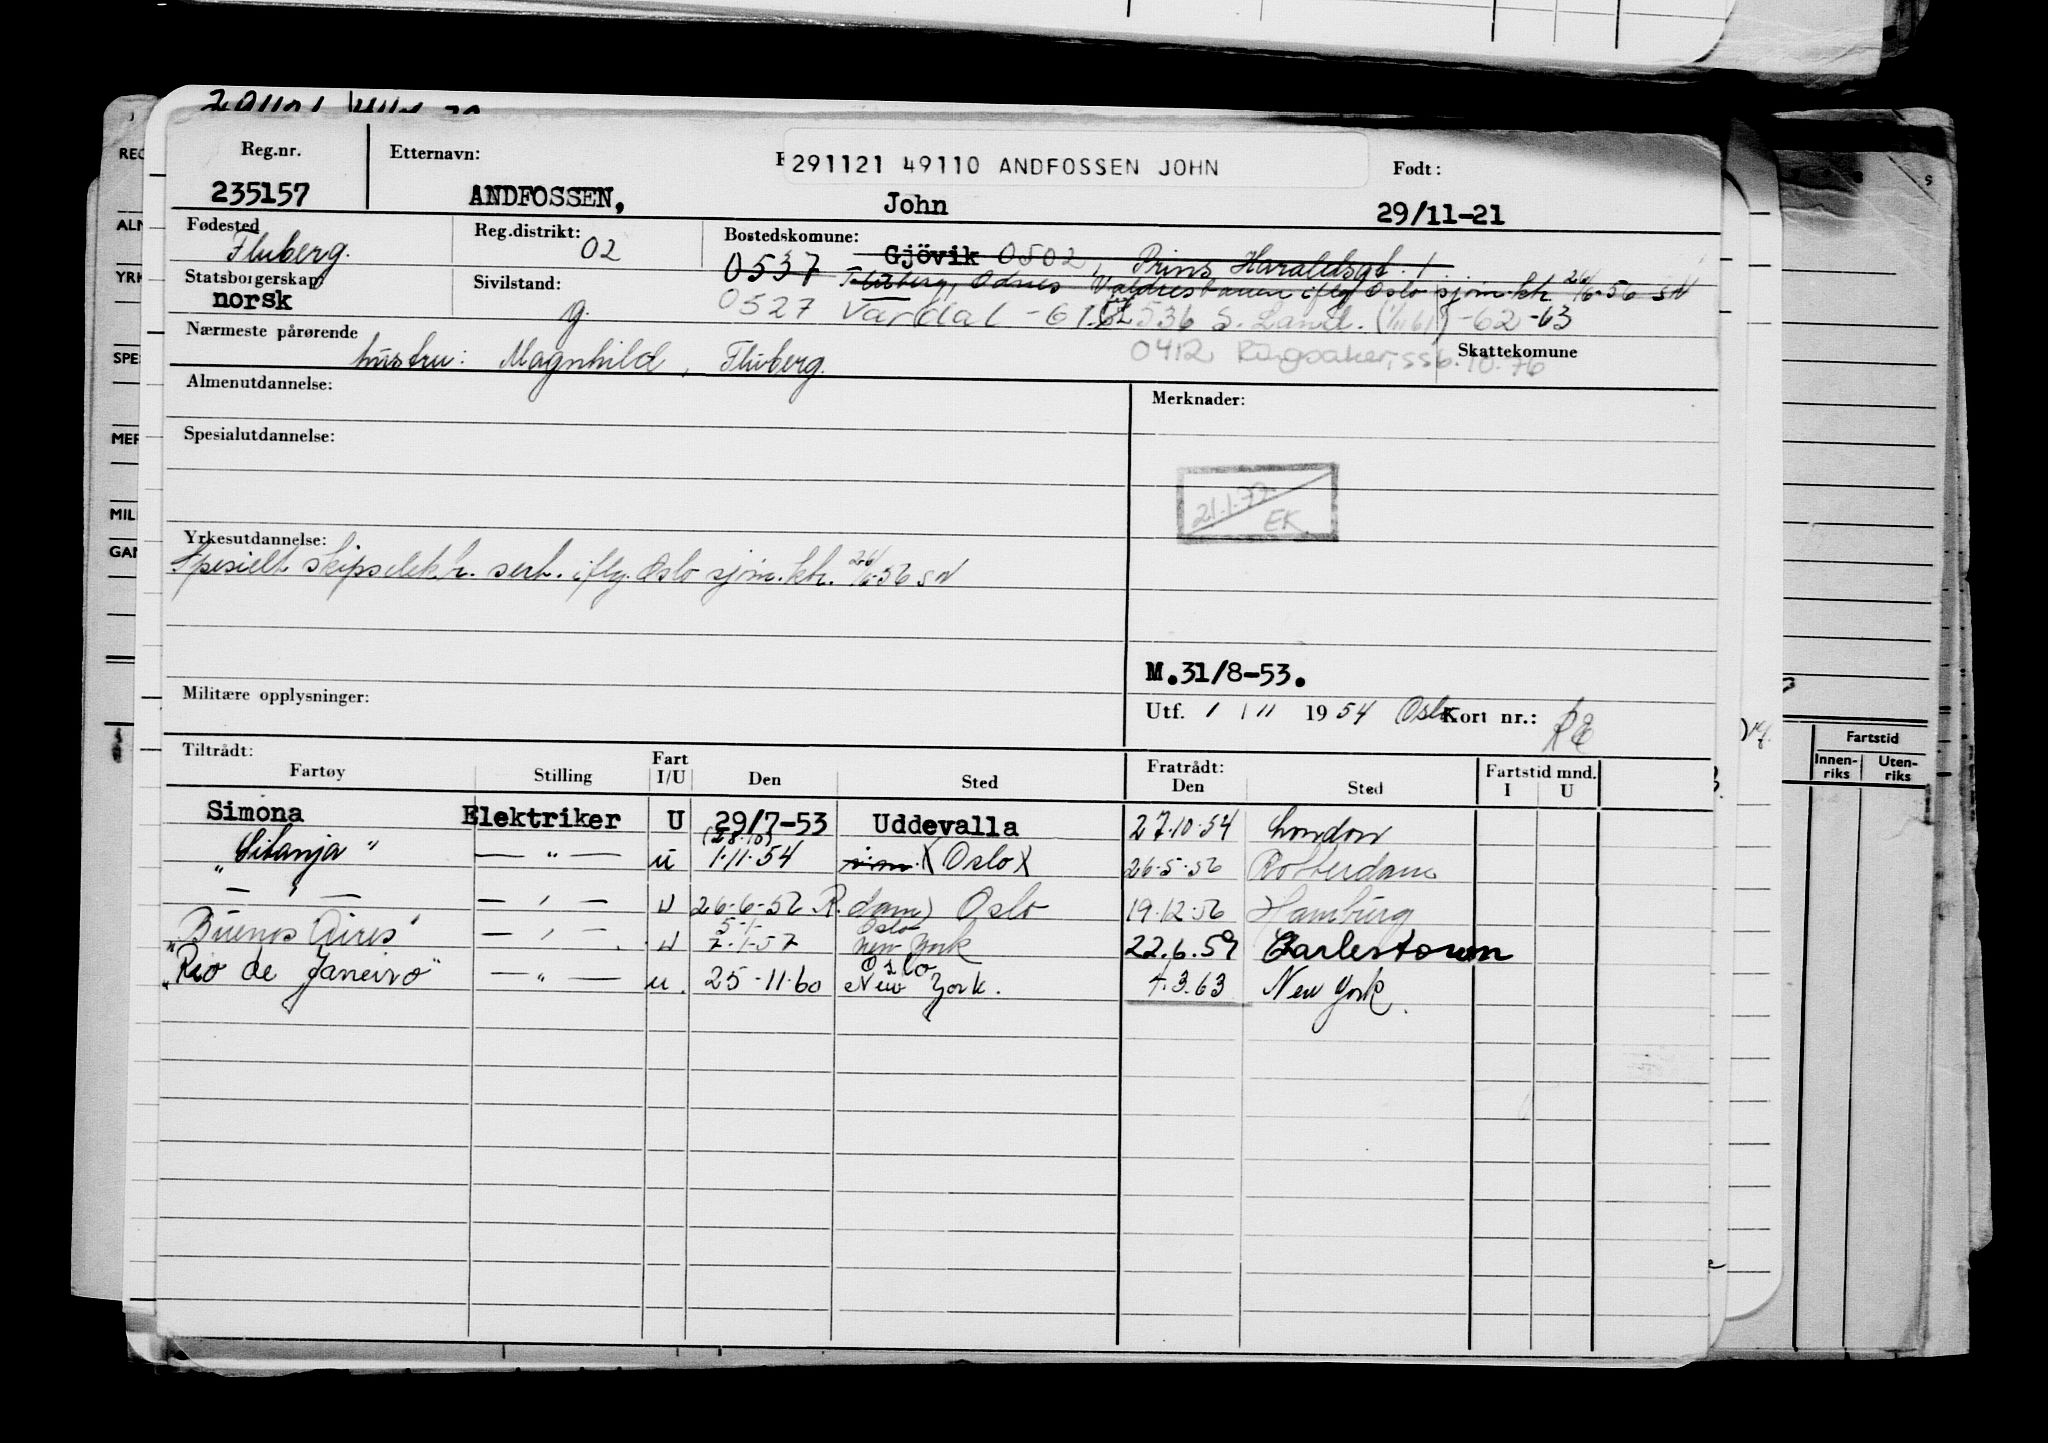 Reg.nr. Etternavn: 291121 49110 ANDFOSSEN JOHN Født:
235157 ANDFOSSEN, John 29/11-21
Fødested Reg.distrikt: Bostedskomune:
Fluberg. 02 Gjövik 0502, Prins Haraldsgt. 1
Statsborgerskap Sivilstand: 0537 Fluberg, Odnes Valdresbanen iflg Oslo sjøm.ktr. 26/6-56 SN
norsk g. 0527 Vardal -61.62 536 S. Land. (1/11 61) -62 -63
Nærmeste pårørende 0412 Ringsaker, ssb. 10.76 Skattekomune
hustru: Magnhild, Fluberg.
Almenutdannelse: Merknader:
Spesialutdannelse:
21.1.72
EK
Yrkesutdannelse:
Spesielt skipselektr. sert. iflg. Oslo sjøm.ktr. 26/6-56 SN
M.31/8-53.
Militære opplysninger: Utf. 1 / 11 1954 Oslo Kort nr.:
Tiltrådt: Fratrådt:
Fartøy Stilling Fart I/U Den Sted Den Sted Fartstid mnd. I U
Simona Elektriker U 29/7-53 Uddevalla 27.10.54 London
(28.10)
"Sitanja" — " — u 1.11.54 (Oslo) 26.5.56 Rotterdam
— " — — " — U 26.6.56 R.dam) Oslo 19.12.56 Hamburg
5-1 Oslo
"Buenos Aires" — " — U 7.1.57 New York 22.6.59 Carlestown
Oslo
"Rio de Janeiro" — " — u. 25-11.60 New York. 4.3.63 New York.
Fartstid
Innen-riks Uten-riks